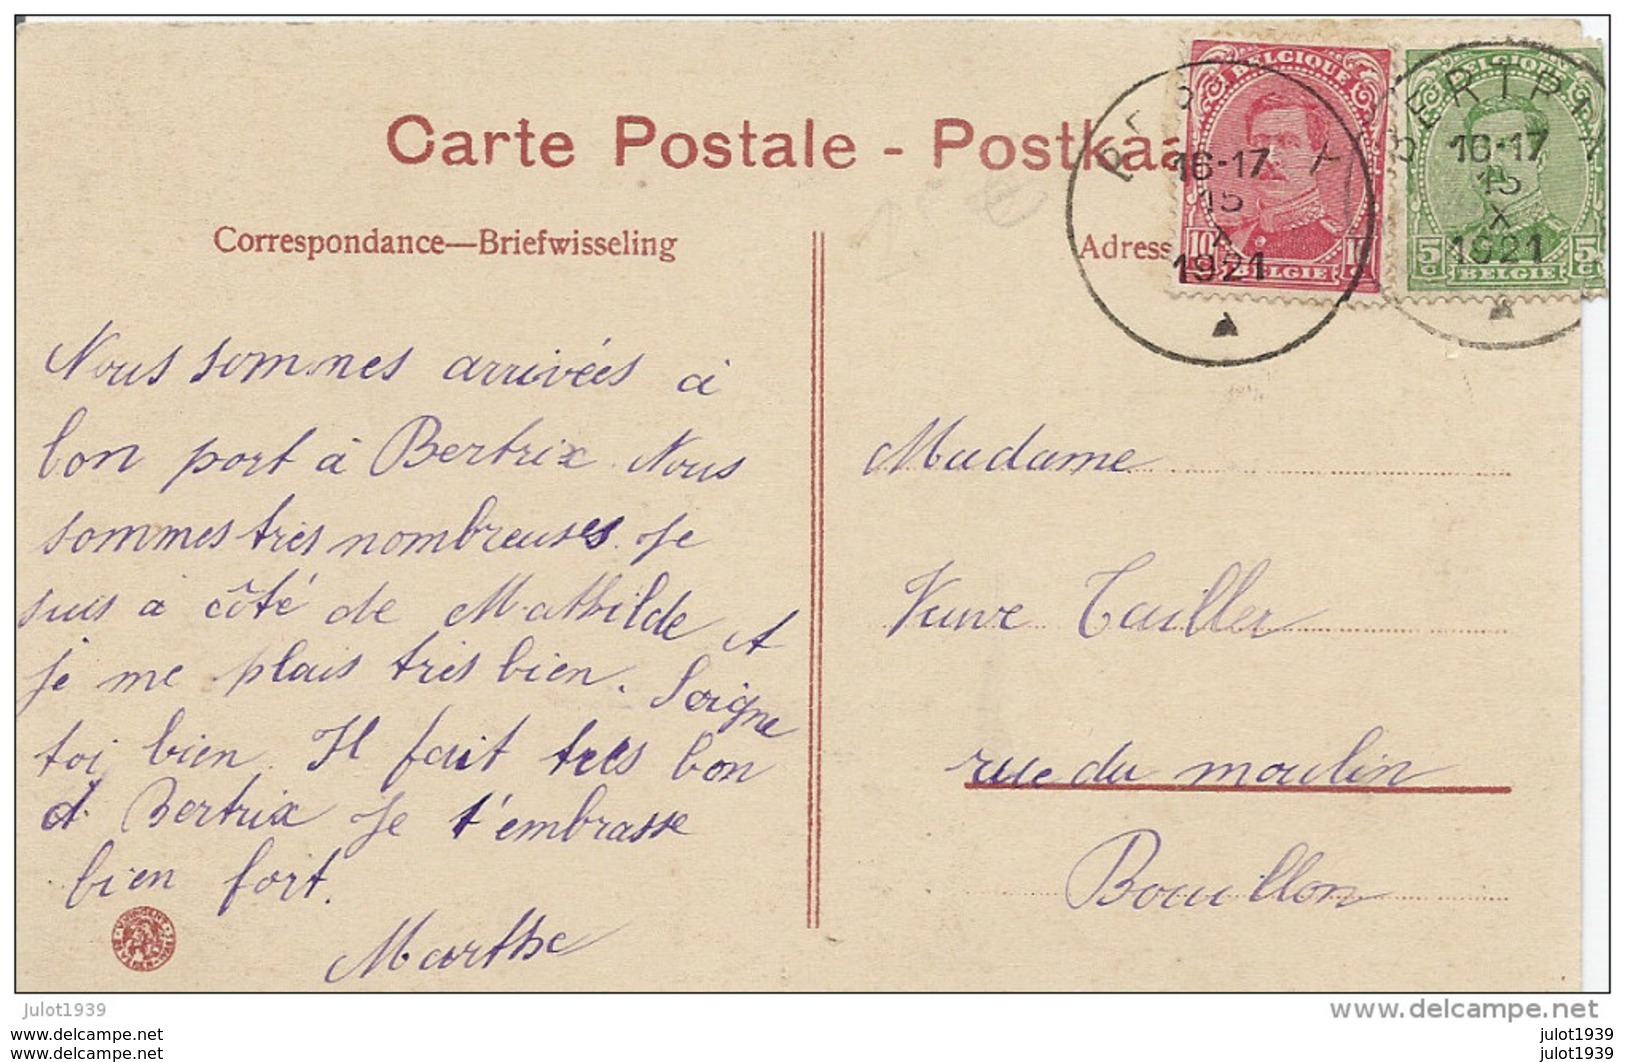 Carte Postale - Postkaa
Correspondance—Briefwisseling
Adress
BELGIQUE
10 1
C C
BELGIE
BELGIQUE
5 5
C C
BELGIE
16-17
15
X
1921
BERTRIX
16-17
15
X
1921
Nous sommes arrivées à
bon port à Bertrix. Nous
sommes très nombreuses. Je
suis à côté de Mathilde et
je me plais très bien. Soigne
toi bien. Il fait très bon
à Bertrix Je t'embrasse
bien fort.
Marthe
Madame
Veuve Tailler
rue du moulin
Bouillon
julot1939
www.delcampe.net
julot1939
julot1939
julot1939
julot1939